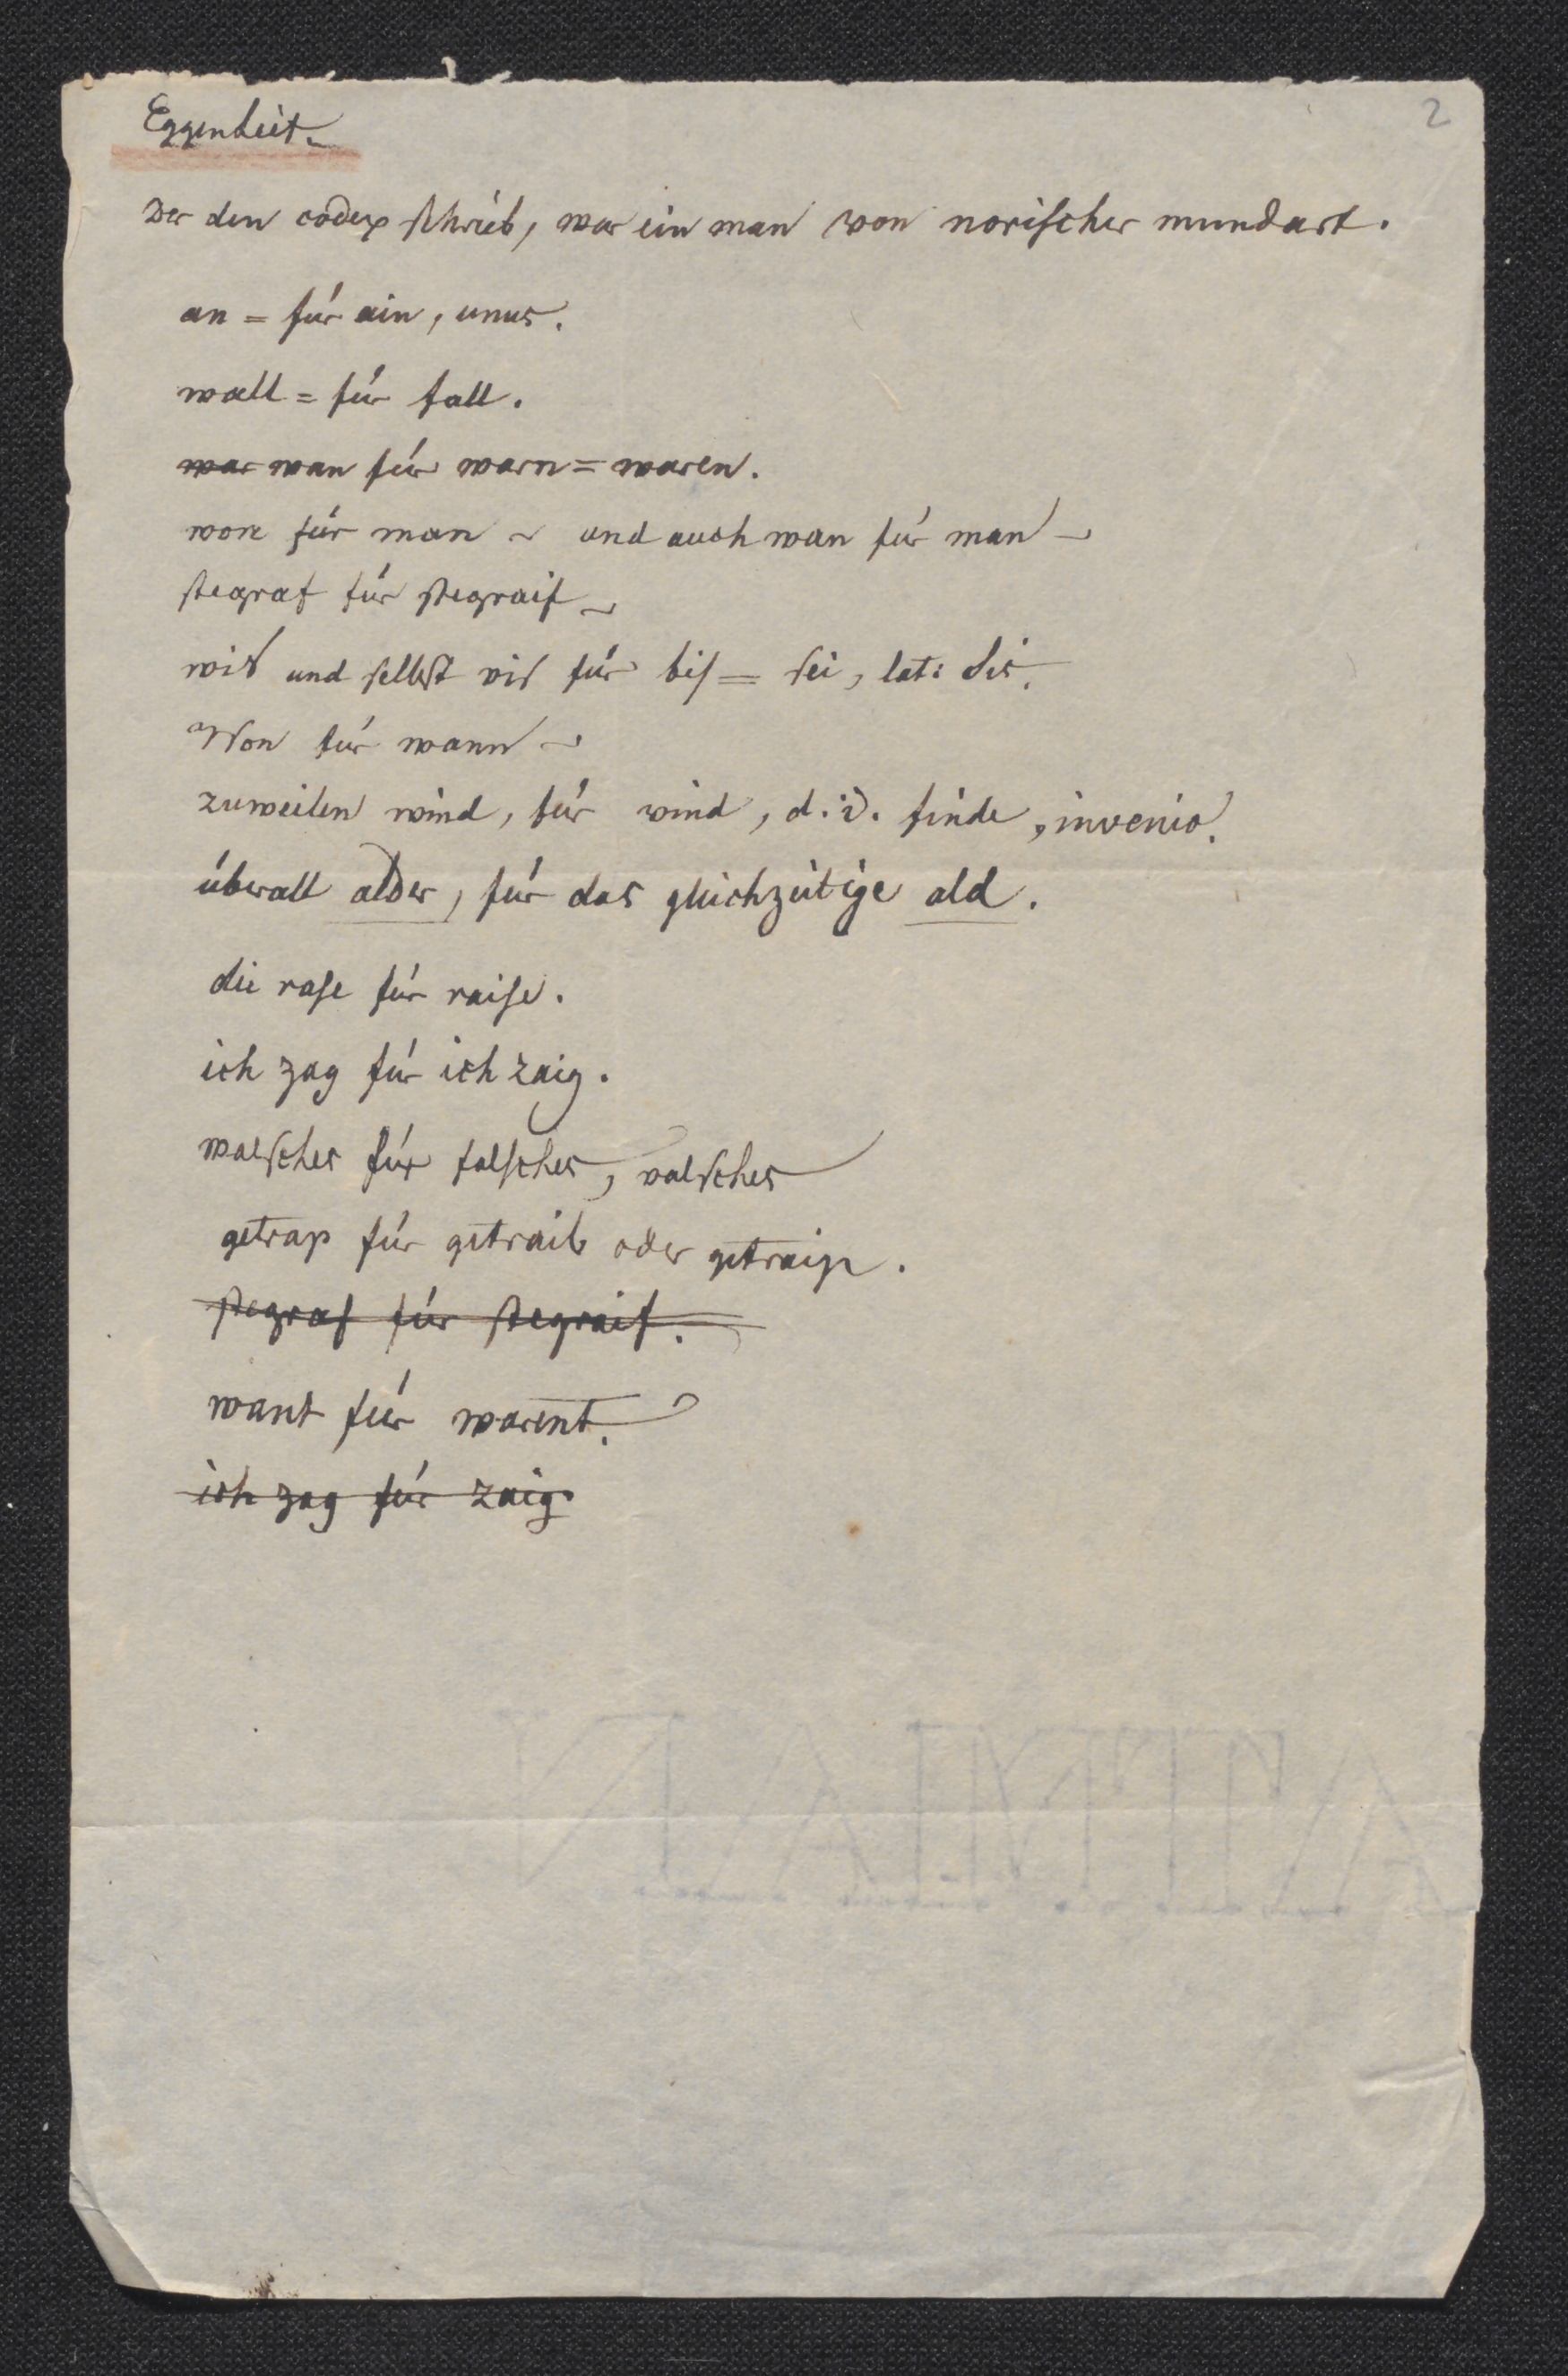 2
Eggenliet.
Der den codex schrieb, war ein man von norischer mundart.
an = für ain, unus.
wall = für fall.
war wan für warn = waren.
won für man – und auch wan für man –
stegraf für stegraif –
wis und selbst vis für bis = sei, lat: sis.
Won für wann –
zuweilen wind, für vind, d. i. finde, invenio.
überall alder, für das gleichzeitige ald.
die rase für raise.
ich zag für ich zaig.
walsches für falsches, valsches
getrap für getraib oder getraip.
stegraf für stegraif.
want für warent.
ich zag für zaig.